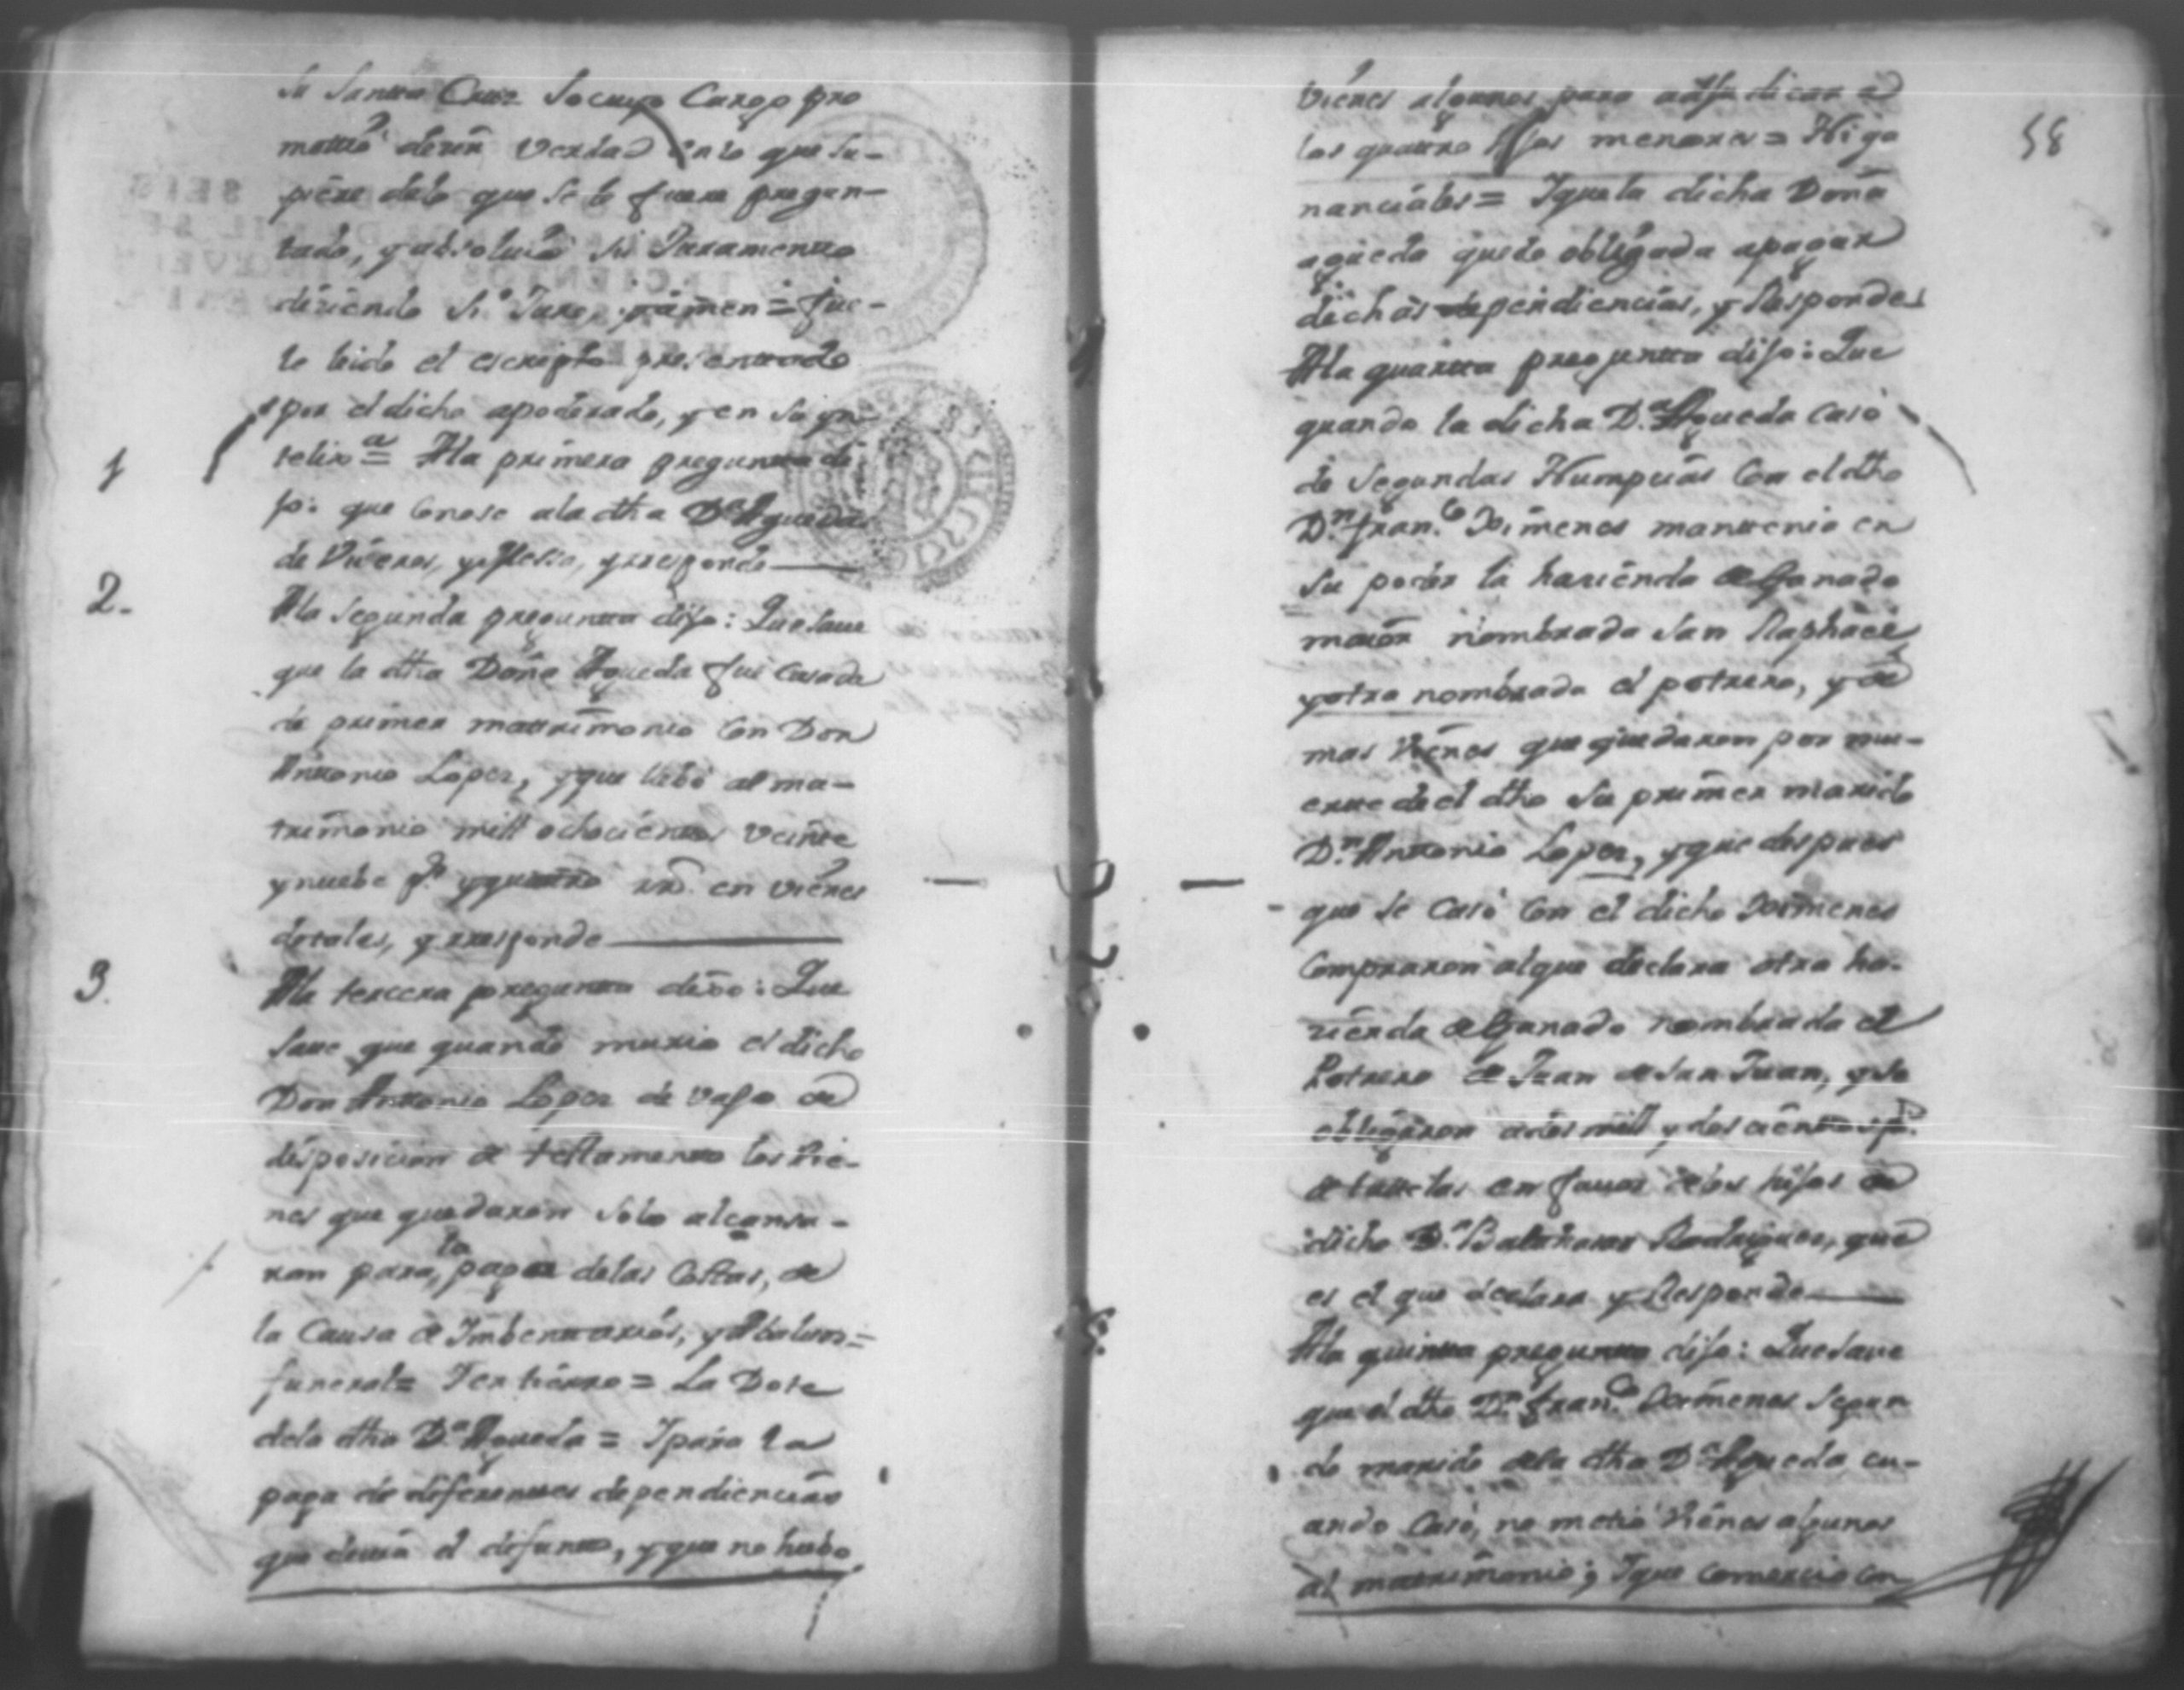 su Santta Cruz so cuyo Cargo pro
mettió desir verdad en lo que su-
piere delo que se le fuere pregun-
tado, y absoluió su Juramento
diziendo si Juro, amen = fue-
le leido el escripto presentado
por el dicho apoderado, y en su yn-
telix.ª = Ala primera pregunta di
1
jo: que Conose ala dha D.ª Agueda
de Viueros, y responde
2.
Ala segunda pregunta dijo: Que saue
que la dha Doña Agueda fue Casada
de primer mattrimonio Con Don
Anttonio Lopez, y que llebó al ma-
trimonio mill ochocientos veinte
y nuebe p.s y quattro rr.s en vienes
dotales, y rresponde
3.
Ala tercera pregunta dixo: Que
saue que quando murio el dicho
Don Anttonio Lopez de vajo de
disposicion de testamento los vie-
nes que quedaron solo alcansa-
ron para la paga delas Costas, de
la Causa de Imbenttarios, y Abaluos =
funeral = Y entierro = La Dote
dela dha D.ª Agueda = Y para la
paga de diferentes dependiencias
que deuia el difunto, y que no hubo
58
vienes algunos para adjudicar a
los quattro hijos menores = Ni ga
nanciales = Y que la dicha Doña
agueda quedo obligada a pagar
dichas dependiencias, y Responde
Ala quartta pregunta dijo: Que
quando la dicha D.ª Agueda Casó
de segundas Numpcias Con el dho
D.n Fran.co Ximenes manttenia en
su poder la hazienda de Ganado
maior nombrada San Raphael
y otra nombrada el potrero, y de
mas vienes que quedaron por mu-
erte de el dho su primer marido
D.n Anttonio Lopez, y que despues
que se Casó Con el dicho Ximenes
Compraron al que declara otra ha-
zienda de Ganado nombrada el
Potrero de Juan de San Juan, y se
obligaron a dos mill y dos cientos p.s
de en fauor delos hijos de
dicho D.n Balthasar Rodriguez, que
es el que declara y Responde
Ala quintta pregunta dijo: Que saue
que el dho D.n Fran.co Ximenes segun
do marido dela dha D.ª Agueda cu-
ando Casó, no metió vienes algunos
al mattrimonio; Y que Comercio Con